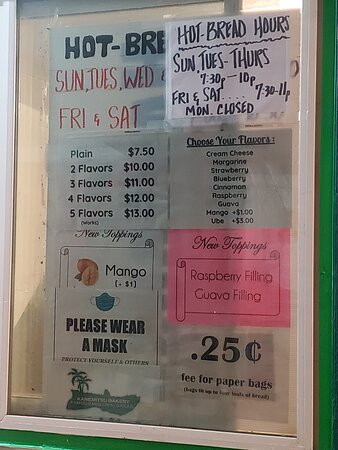 HOT-BRE
SUN, TUES, WED &
FRI & SAT
HOT-BREAD HOURS
SUN, TUES-THURS
7:30p-10p
FRI & SAT.... 7:30-11p
MON. CLOSED
Plain $7.50
2 Flavors $10.00
3 Flavors $11.00
4 Flavors $12.00
5 Flavors $13.00
(Works)
Choose Your Flavors:
Cream Cheese
Margarine
Strawberry
Blueberry
Cinnamon
Raspberry
Guava
Mango +$1.00
Ube +$3.00
New Toppings
Mango
(+ $1)
New Toppings
Raspberry Filling
Guava Filling
PLEASE WEAR
A MASK
PROTECT YOURSELF & OTHERS
KANEMITSU BAKERY
.25¢
fee for paper bags
(bags fit up to four loafs of bread)